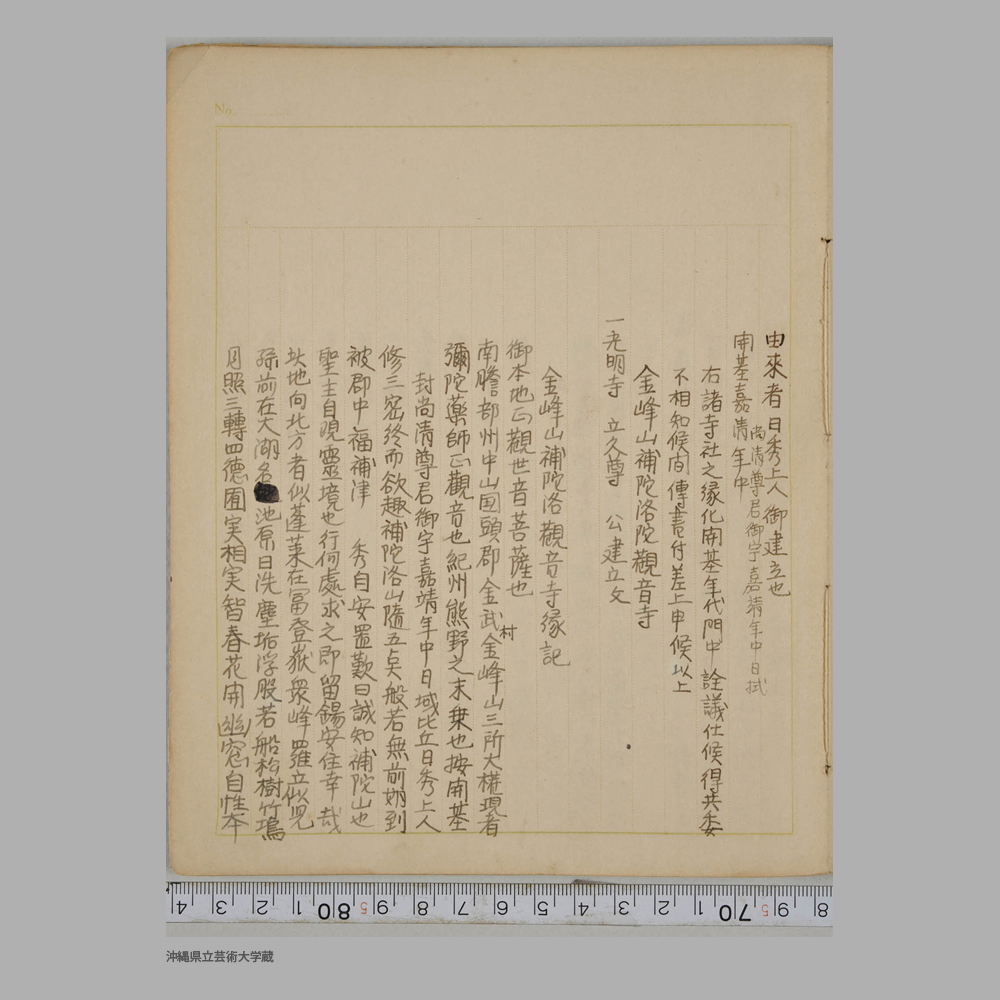 由來者日秀上人御建立也
尚清尊君御宇嘉靖年中日拭
開基嘉清年中
右諸寺社之縁化開基年代門中詮議仕候得共委
不相知候間傳書付差上申候以上
金峰山補陀洛陀觀音寺
一光明寺 立久尊 公建立文
金峰山補陀洛觀音寺縁記
御本地正觀世音菩薩也
南瞻部州中山国頭郡金武村金峰山三所大権現者
彌陀藥師正觀音也紀州熊野之末乗也按開基
封尚清尊君御宇嘉靖年中日域比丘日秀上人
修三密終而欲趣補陀洛山隨五点般若無前期到
彼郡中福補津 秀自安置歎曰誠知補陀山也
聖主自現靈境也行何處求之即留錫安住幸哉
坎地向北方者似蓬莱在冨登嶽衆峰羅立似兒
孫前在大湖名池原日洗塵垢浮般若船松樹竹塢
月照三轉四德圓実相実智春花開幽窓自性本
No.
4 3 2 1 80 5 9 8 7 6 5 4 3 2 1 70 5 9 8
沖縄県立芸術大学蔵